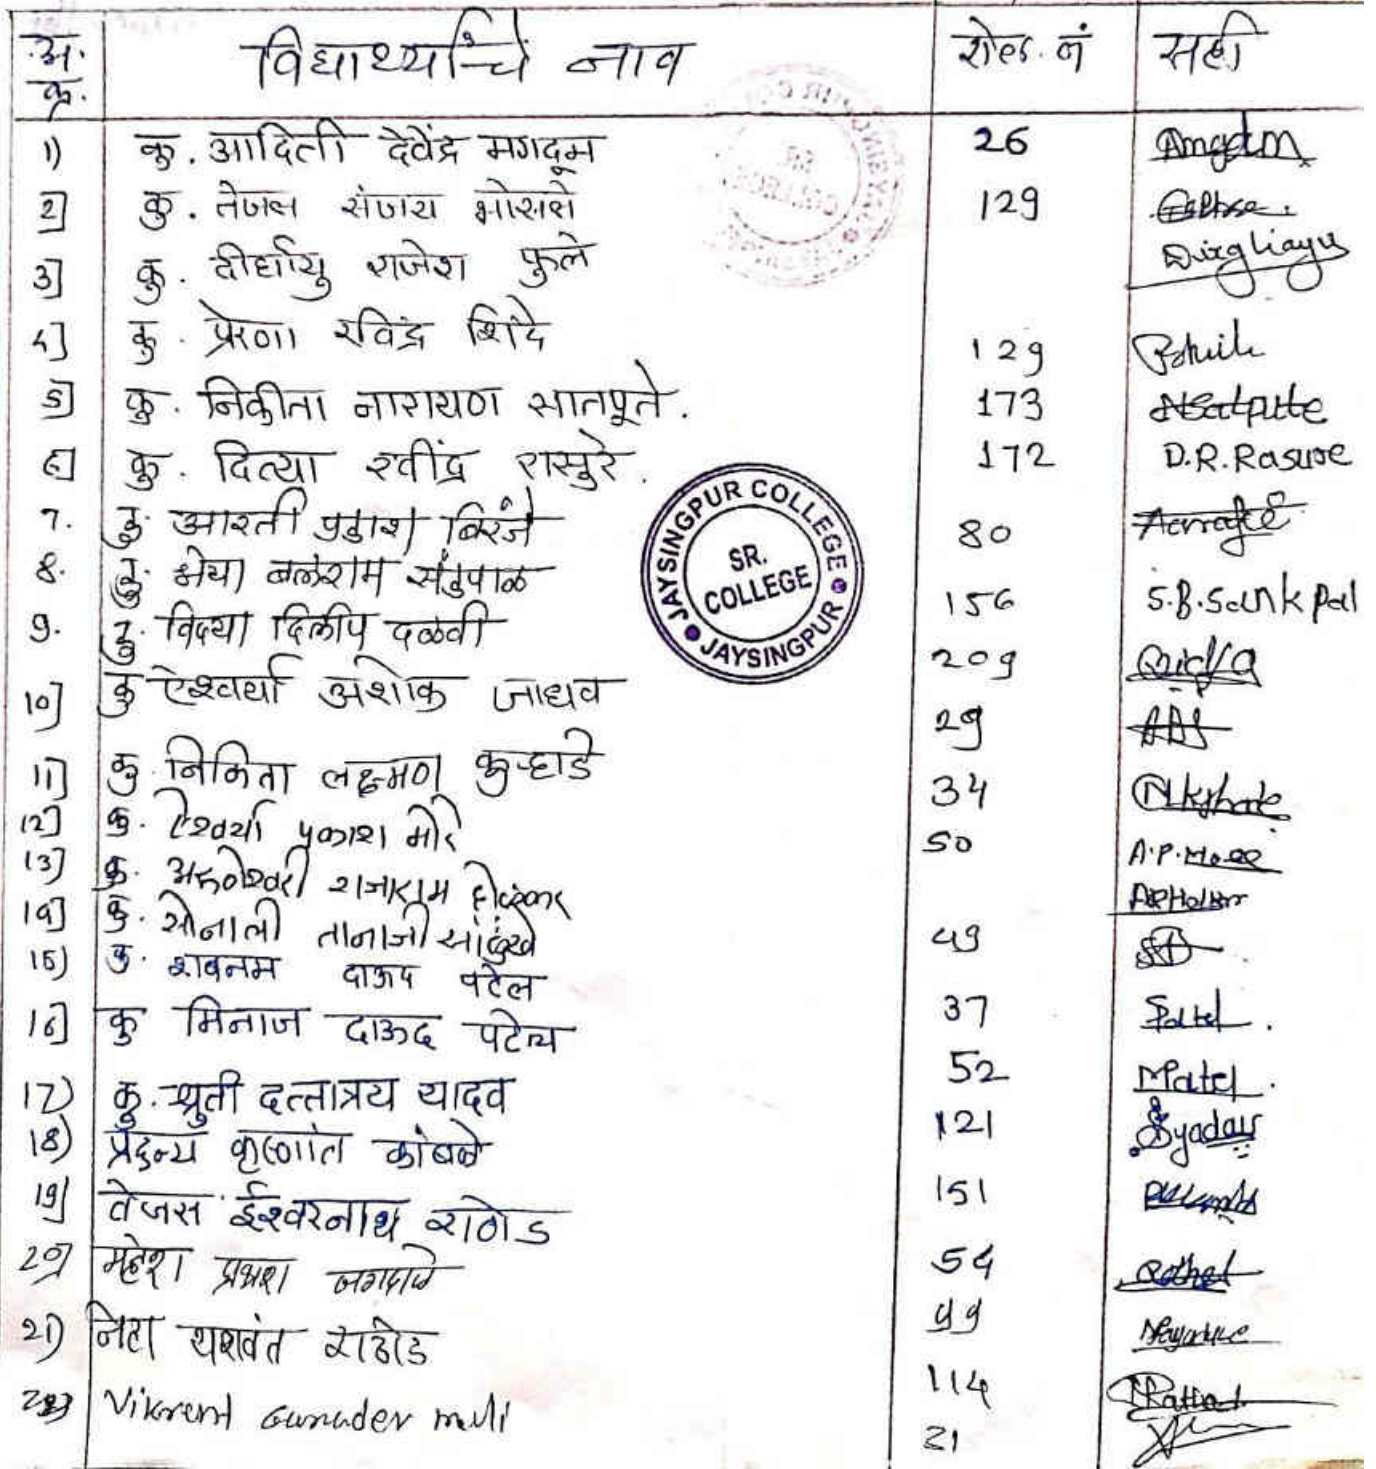 अ. क्र. विद्यार्थ्यांचे नाव रोल. नं सही
1) कु. आदिती देवेंद्र मगदूम 26 Amgdm
2] कु. तेजल संजय भोसले 129
3] कु. दीर्घायु राजेश फुले Dirghayu
4] कु. प्रेरणा रविंद्र शिंदे 129
5] कु. निकीता नारायण सातपूते. 173 NSatpute
6] कु. दित्या रवींद्र रासुरे. 172 D.R.Rasure
7. कु. आरती प्रकाश बिरंजे 80
8. कु. श्रेया बळीराम संकपाळ 156 S.B.Sankpal
9. कु. विद्या दिलीप दळवी 209
10] कु ऐश्वर्या अशोक जाधव 29 AAJ
11] कु. निकिता लक्ष्मण कुऱ्हाडे 34
12] कु. ऐश्वर्या प्रकाश मोरे 50 A.P.More
13] कु. राजाराम होळकर ARHolkar
14] कु. सोनाली तानाजी साळुंखे 49
15) कु. शबनम दाऊद पटेल 37 Patel.
16] कु मिनाज दाऊद पटेल 52 MPatel.
17) कु. श्रुती दत्तात्रय यादव 121 Syadav
18) कृष्णांत कांबळे 151
19] तेजस ईश्वरनाथ राठोड 54
20) महेश प्रकाश 99
21) यशवंत राठोड 114
22) Vikrant mali 21
JAYSINGPUR COLLEGE
SR.
COLLEGE
JAYSINGPUR